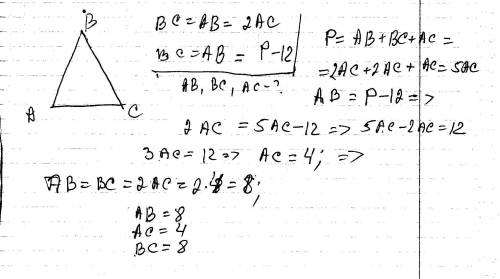 B
A
C
BC = AB = 2AC
BC = AB = P-12
AB, BC, AC - ?
P = AB + BC + AC =
= 2AC + 2AC + AC = 5AC
AB = P-12 =>
2AC = 5AC-12 => 5AC-2AC = 12
3AC = 12 => AC = 4; =>
AB = BC = 2AC = 2·4 = 8;
AB = 8
AC = 4
BC = 8